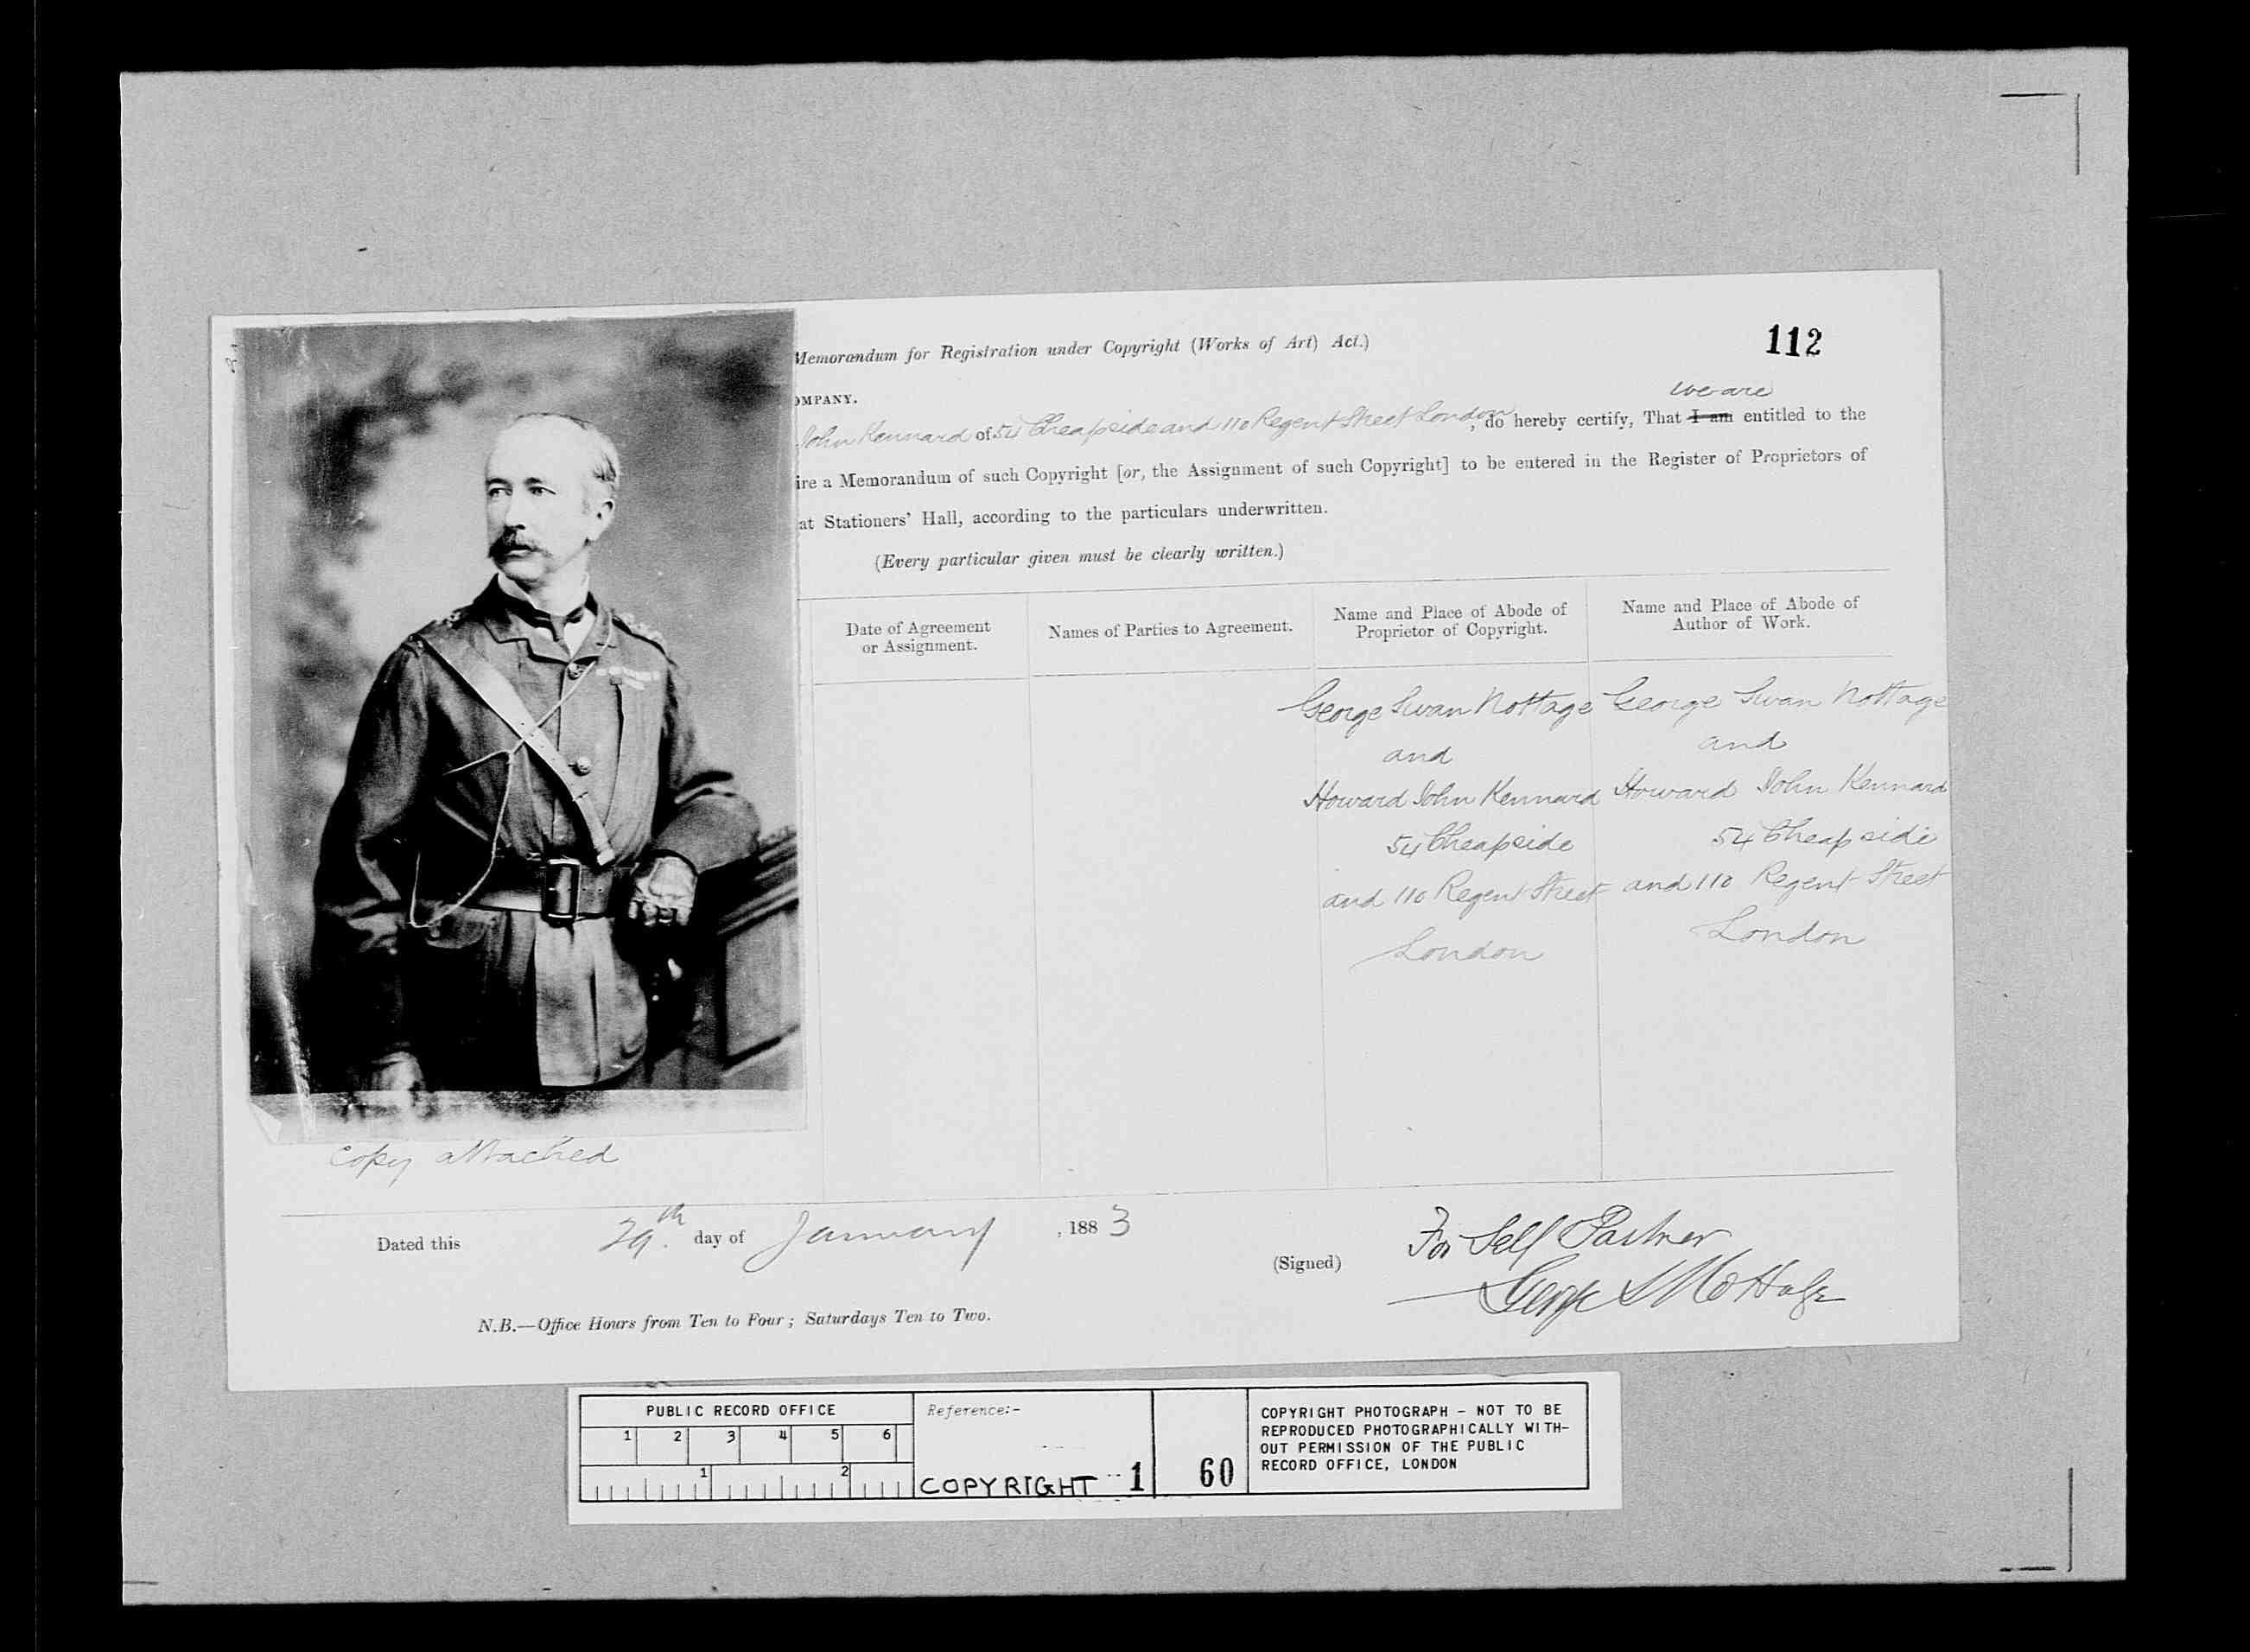 112
Memorandum for Registration under Copyright (Works of Art) Act.)
OMPANY.
we are
John Kennard of 54 Cheapside and 110 Regent Street London, do hereby certify, That I am entitled to the
ire a Memorandum of such Copyright [or, the Assignment of such Copyright] to be entered in the Register of Proprietors of
at Stationers' Hall, according to the particulars underwritten.
(Every particular given must be clearly written.)
Date of Agreement
or Assignment.
Names of Parties to Agreement.
Name and Place of Abode of
Proprietor of Copyright.
Name and Place of Abode of
Author of Work.
George Swan Nottage
and
Howard John Kennard
54 Cheapside
and 110 Regent Street
London
George Swan Nottage
and
Howard John Kennard
54 Cheapside
and 110 Regent Street
London
Copy attached
Dated this 29th. day of January, 1883
(Signed)
For Self Partner
George S Nottage
N.B.—Office Hours from Ten to Four; Saturdays Ten to Two.
PUBLIC RECORD OFFICE
1 2 3 4 5 6
1 2
Reference:-
COPYRIGHT 1
60
COPYRIGHT PHOTOGRAPH - NOT TO BE
REPRODUCED PHOTOGRAPHICALLY WITH-
OUT PERMISSION OF THE PUBLIC
RECORD OFFICE, LONDON